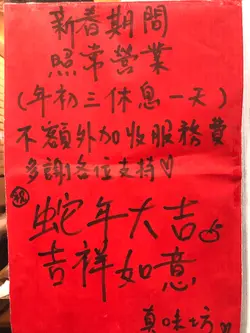 新春期間
照常營業
(年初三休息一天)
不額外加收服務費
多謝各位支持♡
祝
蛇年大吉
吉祥如意
真味坊